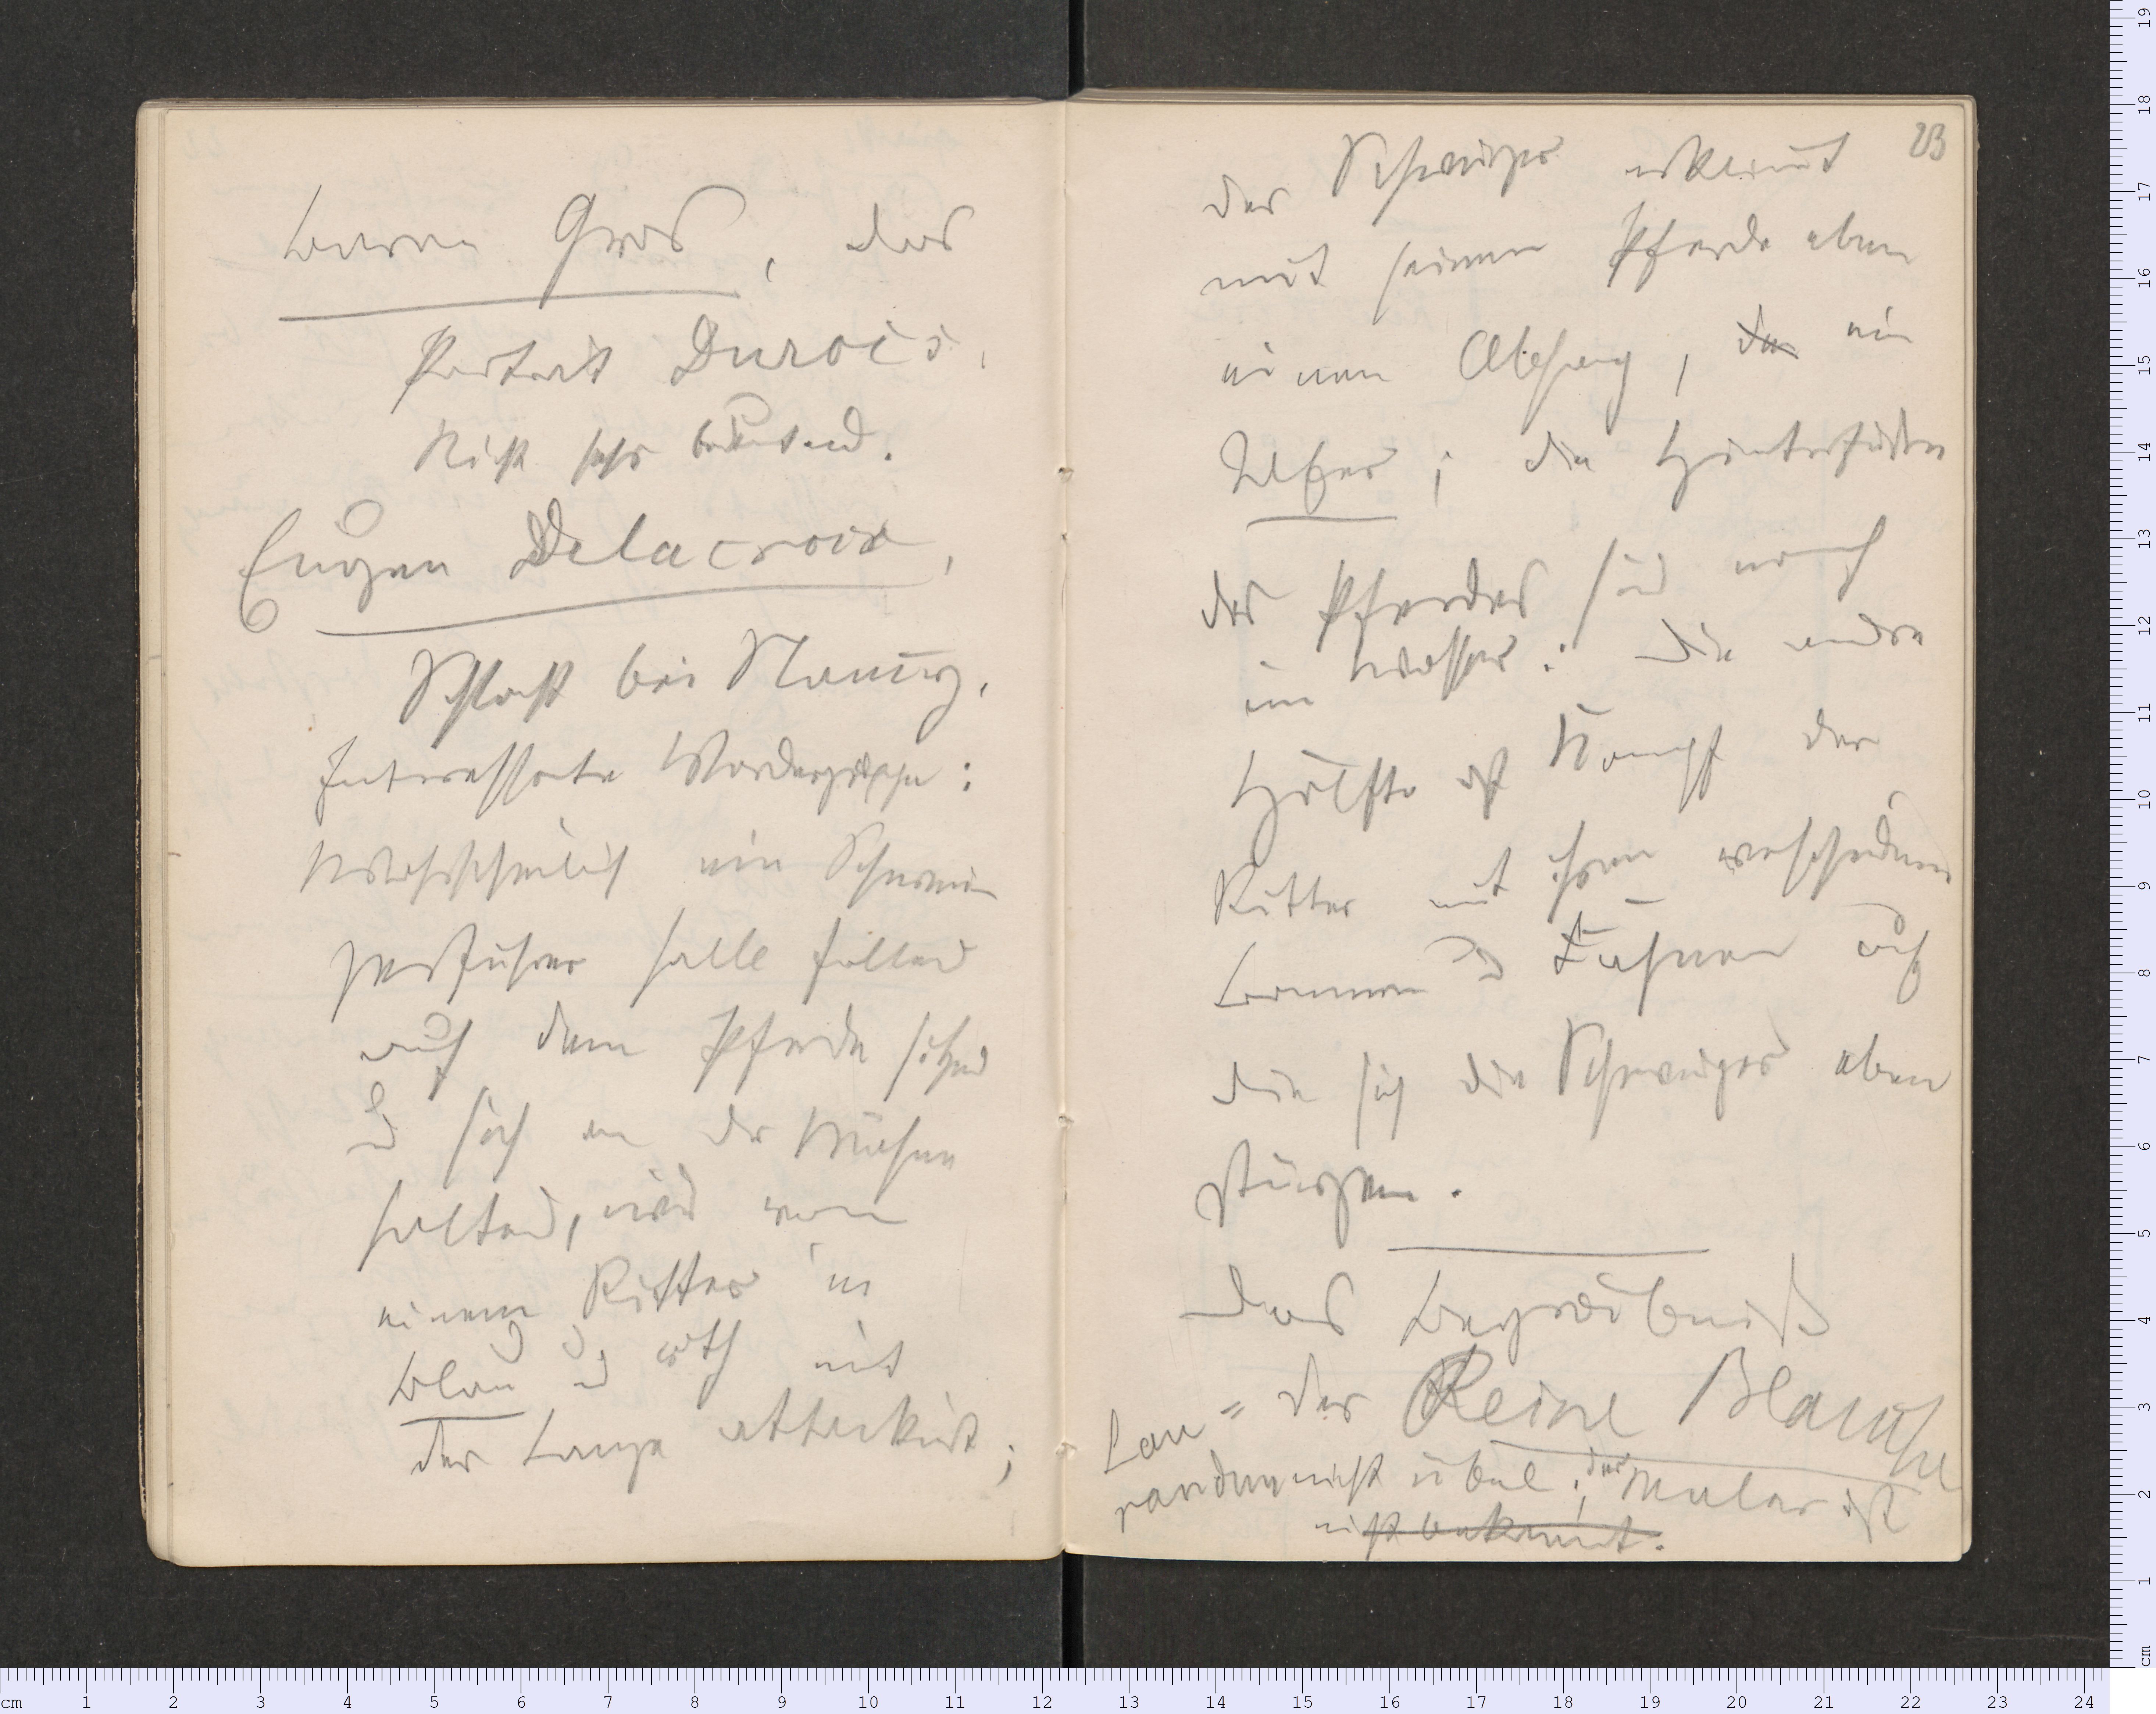 Baron Gros, das
Portrait Durocs,
Nicht sehr bedeutend.
Eugen Delacroix,
Schlacht bei Nancy.
Interessante Vordergruppe:
Wahrscheinlich ein Schwei
zerführer halb fallend
auf dem Pferde sitzend
u sich an der Mähne
haltend, wird von
einem Ritter in
blau u roth mit
der Lanze attackirt;
23
der Schweizer erklimmt
mit seinem Pferde eben
einen Abhang, den ein
Ufer; die Hinterfüße
des Pferdes sind noch
im Wasser: die andre
Hälfte ist Kampf der
Ritter mit ihren verschiednen
Bannern u Fahnen auf
die sich die Schweizer eben
stürzen.
Das Begräbniß
der Reine Blanche
nicht übel; der Maler ist
nicht bekannt.
Lau=
randeau